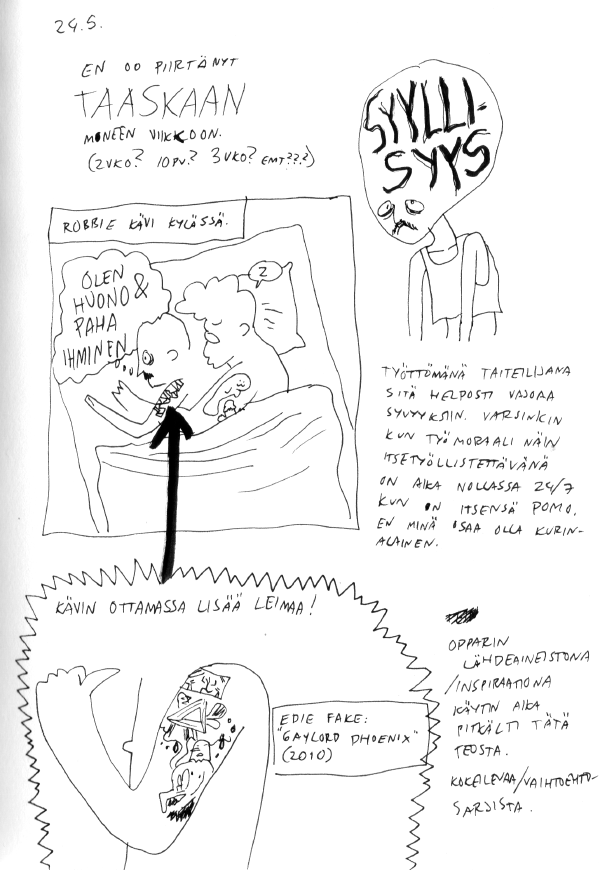 24.5.
EN OO PIIRTÄNYT
TAASKAAN
MONEEN VIIKKOON.
(2VKO? 10PV? 3VKO? EMT???)
SYYLLI-
SYYS
ROBBIE KÄVI KYLÄSSÄ.
OLEN
HUONO &
PAHA
IHMINEN
Z
TYÖTTÖMÄNÄ TAITEILIJANA
SITÄ HELPOSTI VAJOAA
SYVYYKSIIN. VARSINKIN
KUN TYÖMORAALI NÄIN
ITSETYÖLLISTETTÄVÄNÄ
ON AIKA NOLLASSA 24/7
KUN ON ITSENSÄ POMO.
EN MINÄ OSAA OLLA KURIN-
ALAINEN.
KÄVIN OTTAMASSA LISÄÄ LEIMAA!
EDIE FAKE:
"GAYLORD PHOENIX"
(2010)
OPPARIN
LÄHDEAINEISTONA
/INSPIRAATIONA
KÄYTIN AIKA
PITKÄLTI TÄTÄ
TEOSTA.
KOKEILEVAA/VAIHTOEHTO-
SARJISTA.